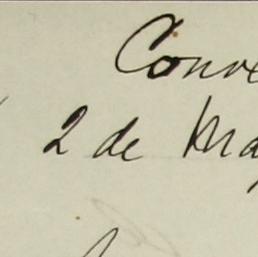 Conve
2 de Ma